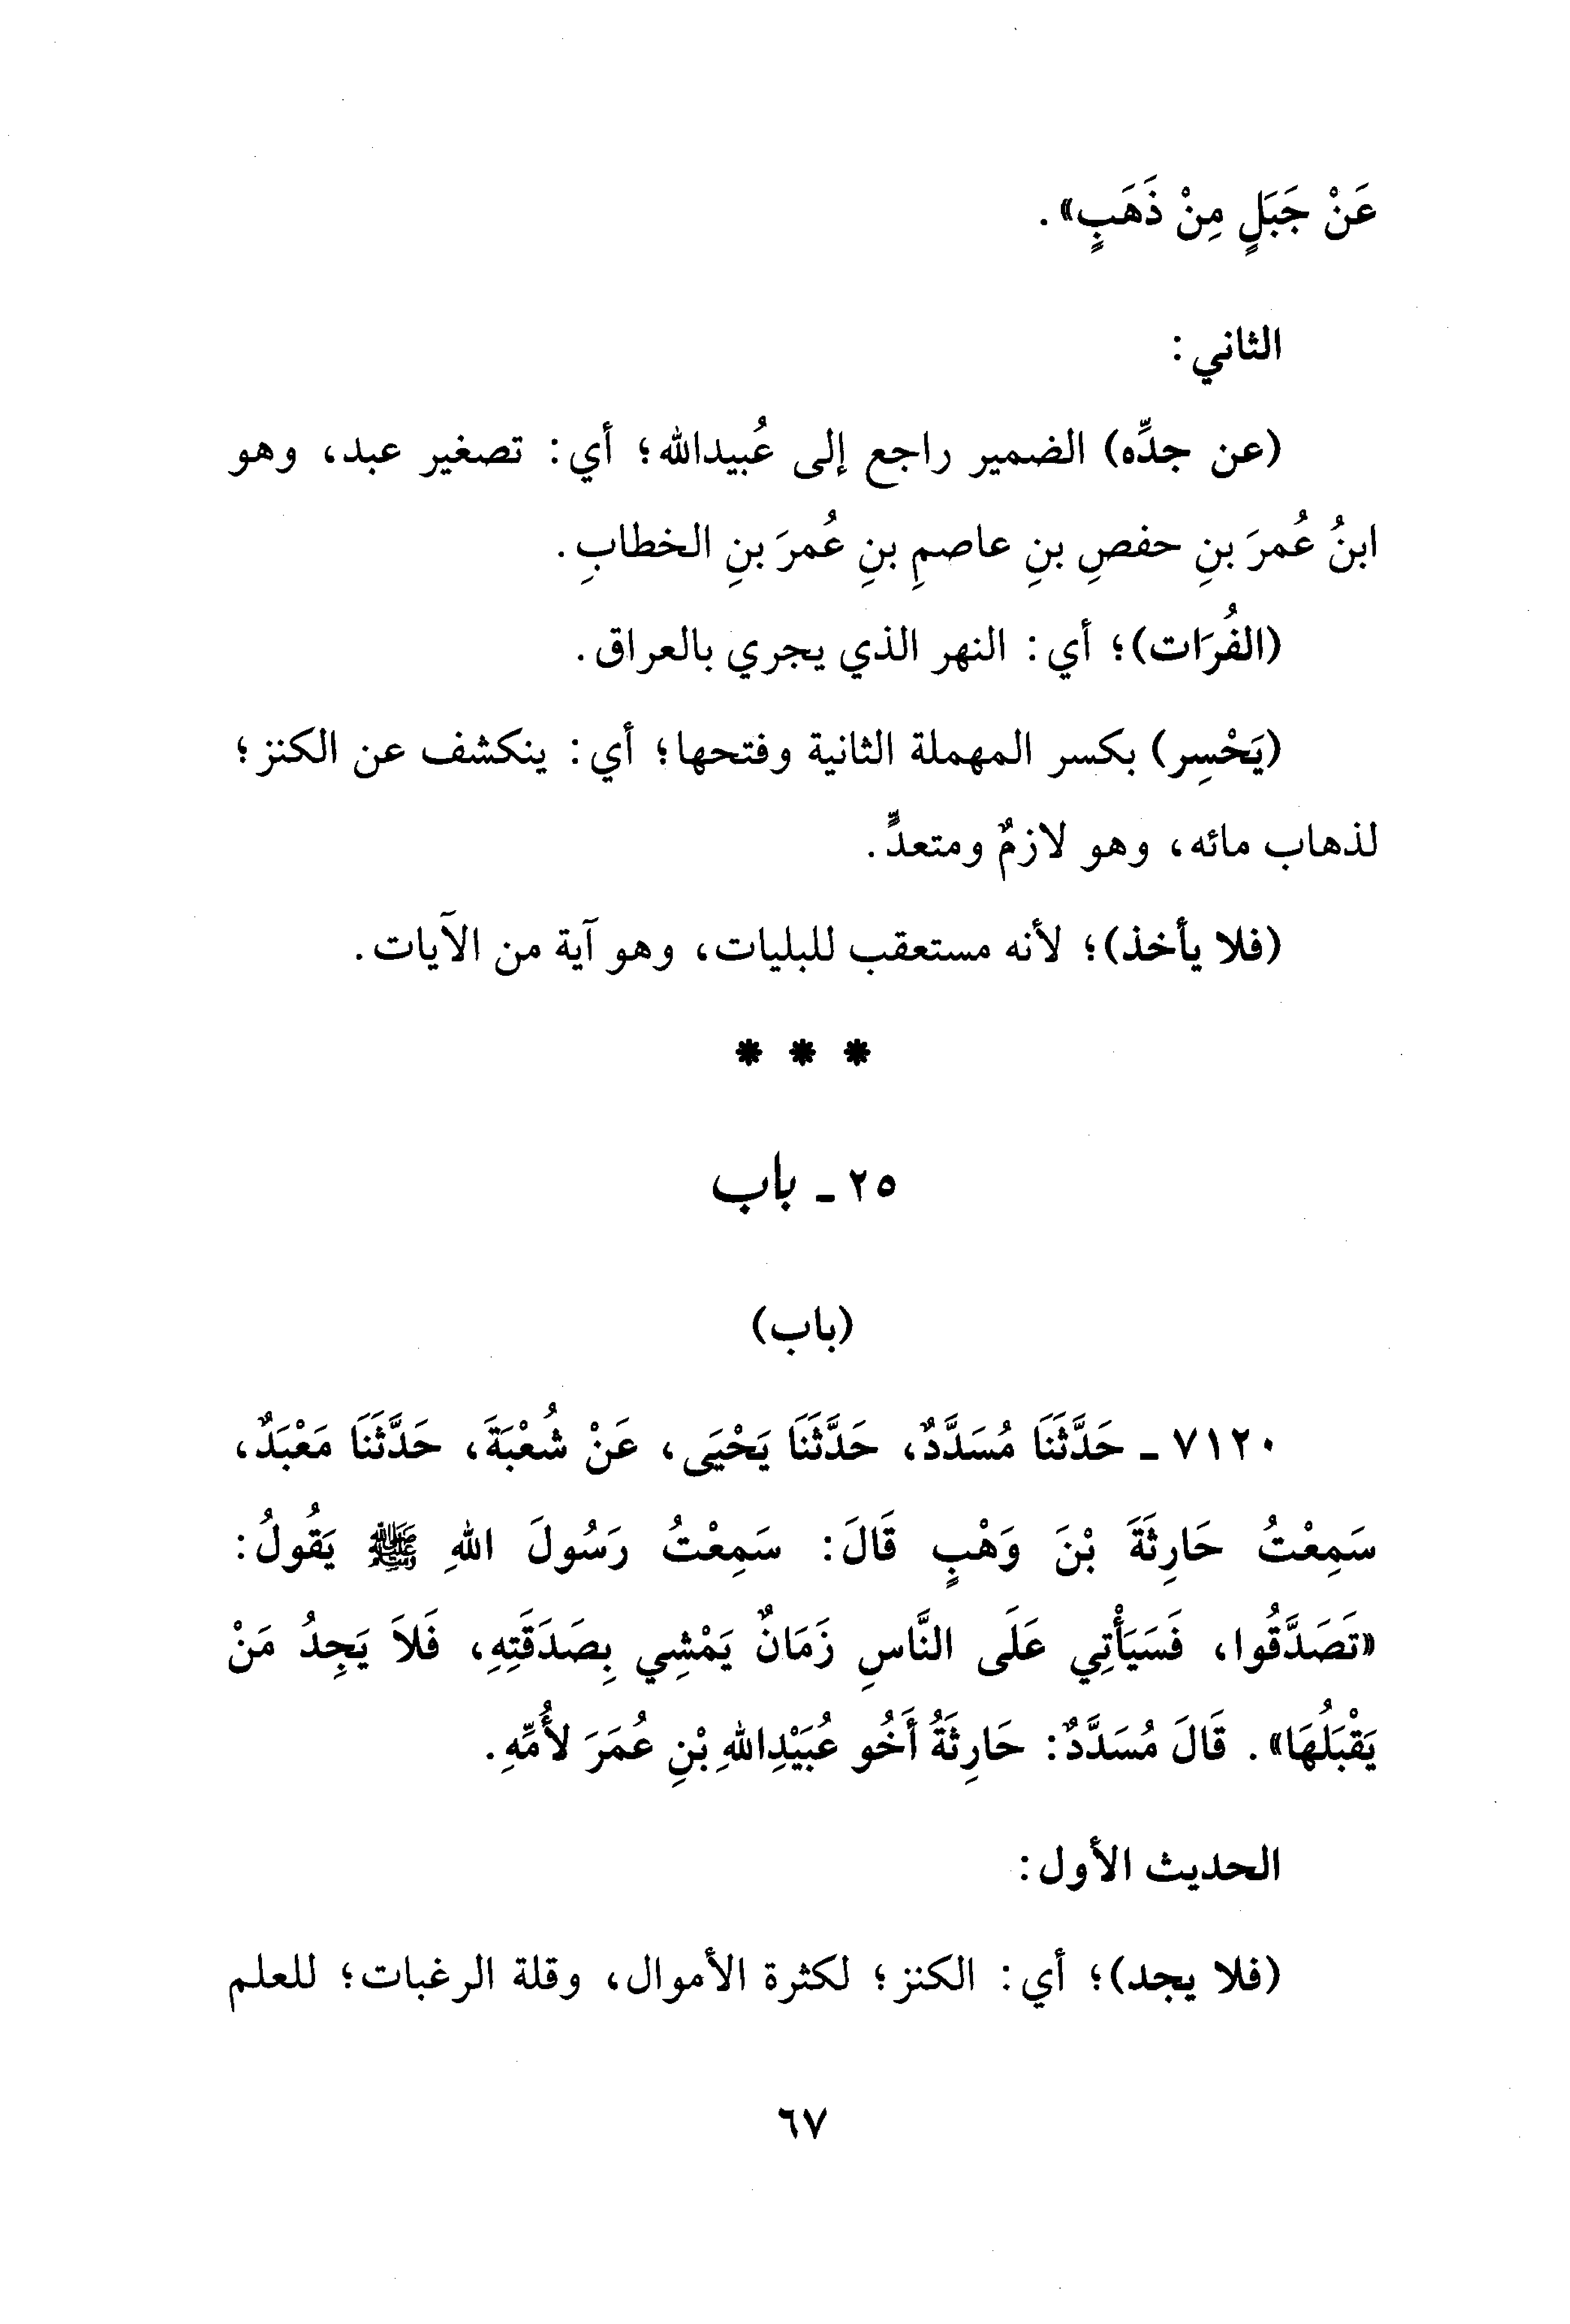 عَنْ جَبَلٍ مِنْ ذَهَبٍ» .
الثاني :
(عن جدِّه) الضمير راجع إلى عُبيدالله؛ أي: تصغير عبد، وهو
ابنُ عُمرَ بنِ حفصِ بنِ عاصمِ بنِ عُمرَ بنِ الخطابِ.
(الفُرَات)؛ أي: النهر الذي يجري بالعراق.
(يَحْسِر) بكسر المهملة الثانية وفتحها؛ أي: ينكشف عن الكنز؛
لذهاب مائه، وهو لازمٌ ومتعدٍّ.
(فلا يأخذ)؛ لأنه مستعقب للبليات، وهو آية من الآيات.
* * *
٢٥ - باب
(باب)
٧١٢٠ - حَدَّثَنَا مُسَدَّدٌ، حَدَّثَنَا يَحْيَى، عَنْ شُعْبَةَ، حَدَّثَنَا مَعْبَدٌ،
سَمِعْتُ حَارِثَةَ بْنَ وَهْبٍ قَالَ: سَمِعْتُ رَسُولَ اللهِ ﷺ يَقُولُ:
«تَصَدَّقُوا، فَسَيَأْتِي عَلَى النَّاسِ زَمَانٌ يَمْشِي بِصَدَقَتِهِ، فَلاَ يَجِدُ مَنْ
يَقْبَلُهَا» . قَالَ مُسَدَّدٌ: حَارِثَةُ أَخُو عُبَيْدِاللهِ بْنِ عُمَرَ لأُمِّهِ.
الحديث الأول:
(فلا يجد)؛ أي: الكنز؛ لكثرة الأموال، وقلة الرغبات؛ للعلم
٦٧